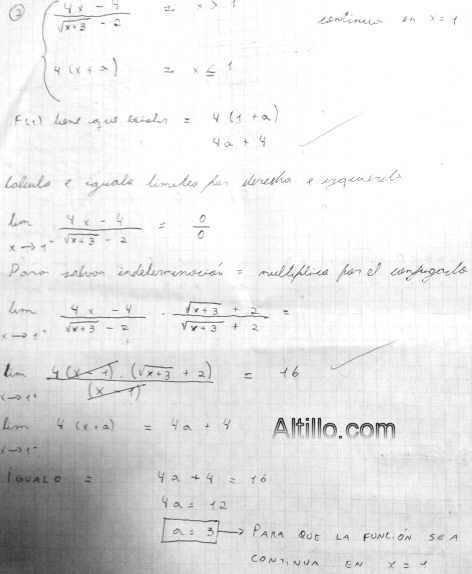 ② { (4x - 4) / (√x+3 - 2) = x > 1 continua en x = 1
4(x+a) = x ≤ 1
F(1) tiene que existir = 4(1+a)
4a + 4
Calculo e igualo limites por derecha e izquierda
lim x→1⁻ (4x - 4) / (√x+3 - 2) = 0/0
Para salvar indeterminación = multiplico por el conjugado
lim x→1⁺ (4x - 4) / (√x+3 - 2) · (√x+3 + 2) / (√x+3 + 2) =
lim x→1⁺ 4(x-1) · (√x+3 + 2) / (x-1) = 16
lim x→1⁻ 4(x+a) = 4a + 4
Altillo.com
IGUALO = 4a + 4 = 16
4a = 12
a = 3 → PARA QUE LA FUNCIÓN SEA
CONTINUA EN X = 1